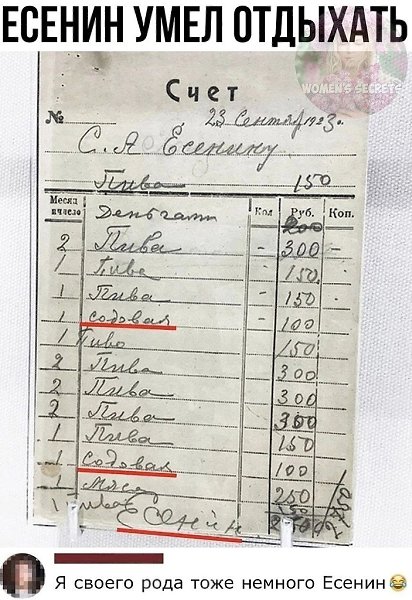 ЕСЕНИН УМЕЛ ОТДЫХАТЬ
WOMEN'S SECRETS
Счет
№ 23 Сентября 1923.
С. А Есенину
Пива 150
Месяц и число Деньгами Кол Руб. Коп.
200
2 Пива - 300 -
1 Пива 150
1 Пива - 150
1 содовая - 100
1 Пиво 150
2 Пива 300
2 Пива 300
2 Пива 300
1 Пива 150
1 Содовая 100
1 Мясо 250
1 Пиво 150
Есенин
Я своего рода тоже немного Есенин😂